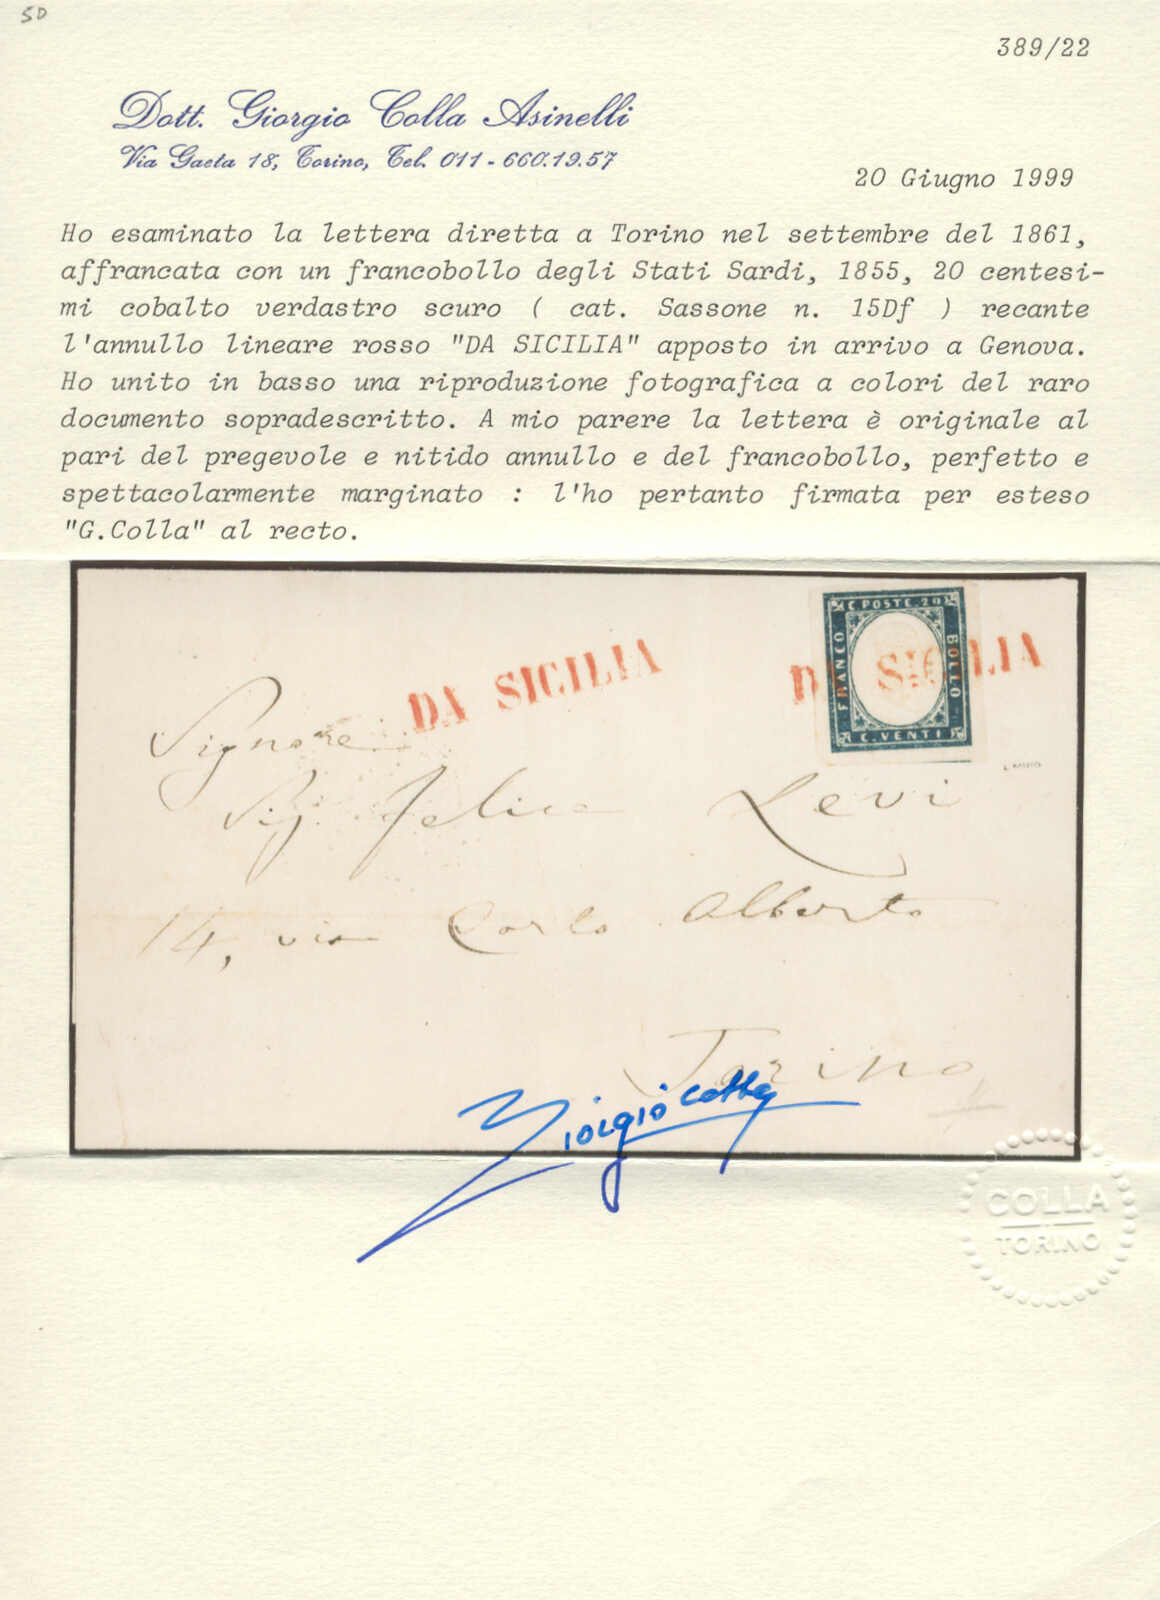 SD
389/22
Dott. Giorgio Colla Asinelli
Via Gaeta 18, Torino, Tel. 011-660.19.57
20 Giugno 1999
Ho esaminato la lettera diretta a Torino nel settembre del 1861,
affrancata con un francobollo degli Stati Sardi, 1855, 20 centesi-
mi cobalto verdastro scuro ( cat. Sassone n. 15Df ) recante
l'annullo lineare rosso "DA SICILIA" apposto in arrivo a Genova.
Ho unito in basso una riproduzione fotografica a colori del raro
documento sopradescritto. A mio parere la lettera è originale al
pari del pregevole e nitido annullo e del francobollo, perfetto e
spettacolarmente marginato : l'ho pertanto firmata per esteso
"G.Colla" al recto.
C. POSTE. 20
FRANCO
BOLLO
C. VENTI
DA SICILIA
DA SICILIA
Signore
Sig. Felice Levi
14, via Carlo Alberto
Torino
Giorgio Colla
COLLA
TORINO